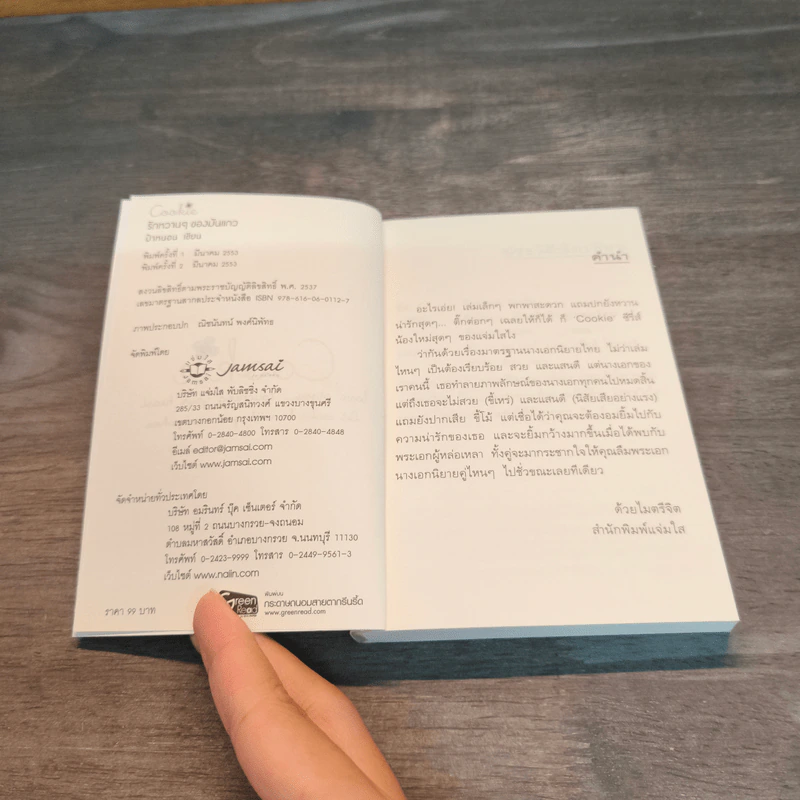 Cookie
รักหวานๆ ของมันแกว
ป้าหนอน เขียน
พิมพ์ครั้งที่ 1 มีนาคม 2553
พิมพ์ครั้งที่ 2 มีนาคม 2553
สงวนลิขสิทธิ์ตามพระราชบัญญัติลิขสิทธิ์ พ.ศ. 2537
เลขมาตรฐานสากลประจำหนังสือ ISBN 978-616-06-0112-7
ภาพประกอบปก ณิชนันทน์ พงศ์นิพัทธ
จัดพิมพ์โดย
jamsai
บริษัท แจ่มใส พับลิชชิ่ง จำกัด
285/33 ถนนจรัญสนิทวงศ์ แขวงบางขุนศรี
เขตบางกอกน้อย กรุงเทพฯ 10700
โทรศัพท์ 0-2840-4800 โทรสาร 0-2840-4848
อีเมล์ editor@jamsai.com
เว็บไซต์ www.jamsai.com
จัดจำหน่ายทั่วประเทศโดย
บริษัท อมรินทร์ บุ๊ค เซ็นเตอร์ จำกัด
108 หมู่ที่ 2 ถนนบางกรวย-จงถนอม
ตำบลมหาสวัสดิ์ อำเภอบางกรวย จ.นนทบุรี 11130
โทรศัพท์ 0-2423-9999 โทรสาร 0-2449-9561-3
เว็บไซต์ www.naiin.com
ราคา 99 บาท
Green Read
พิมพ์บน
กระดาษถนอมสายตากรีนรี้ด
www.greenread.com
คำนำ
อะไรเอ่ย! เล่มเล็กๆ พกพาสะดวก แถมปกยังหวาน
น่ารักสุดๆ... ติ๊กต่อกๆ เฉลยให้ก็ได้ ก็ ‘Cookie’ ซีรี่ส์
น้องใหม่สุดๆ ของแจ่มใสไง
ว่ากันด้วยเรื่องมาตรฐานนางเอกนิยายไทย ไม่ว่าเล่ม
ไหนๆ เป็นต้องเรียบร้อย สวย และแสนดี แต่นางเอกของ
เราคนนี้ เธอทำลายภาพลักษณ์ของนางเอกทุกคนไปหมดสิ้น
แต่ถึงเธอจะไม่สวย (ขี้เหร่) และแสนดี (นิสัยเสียอย่างแรง)
แถมยังปากเสีย ขี้โม้ แต่เชื่อได้ว่าคุณจะต้องอมยิ้มไปกับ
ความน่ารักของเธอ และจะยิ้มกว้างมากขึ้นเมื่อได้พบกับ
พระเอกผู้หล่อเหลา ทั้งคู่จะมากระชากใจให้คุณลืมพระเอก
นางเอกนิยายคู่ไหนๆ ไปชั่วขณะเลยทีเดียว
ด้วยไมตรีจิต
สำนักพิมพ์แจ่มใส